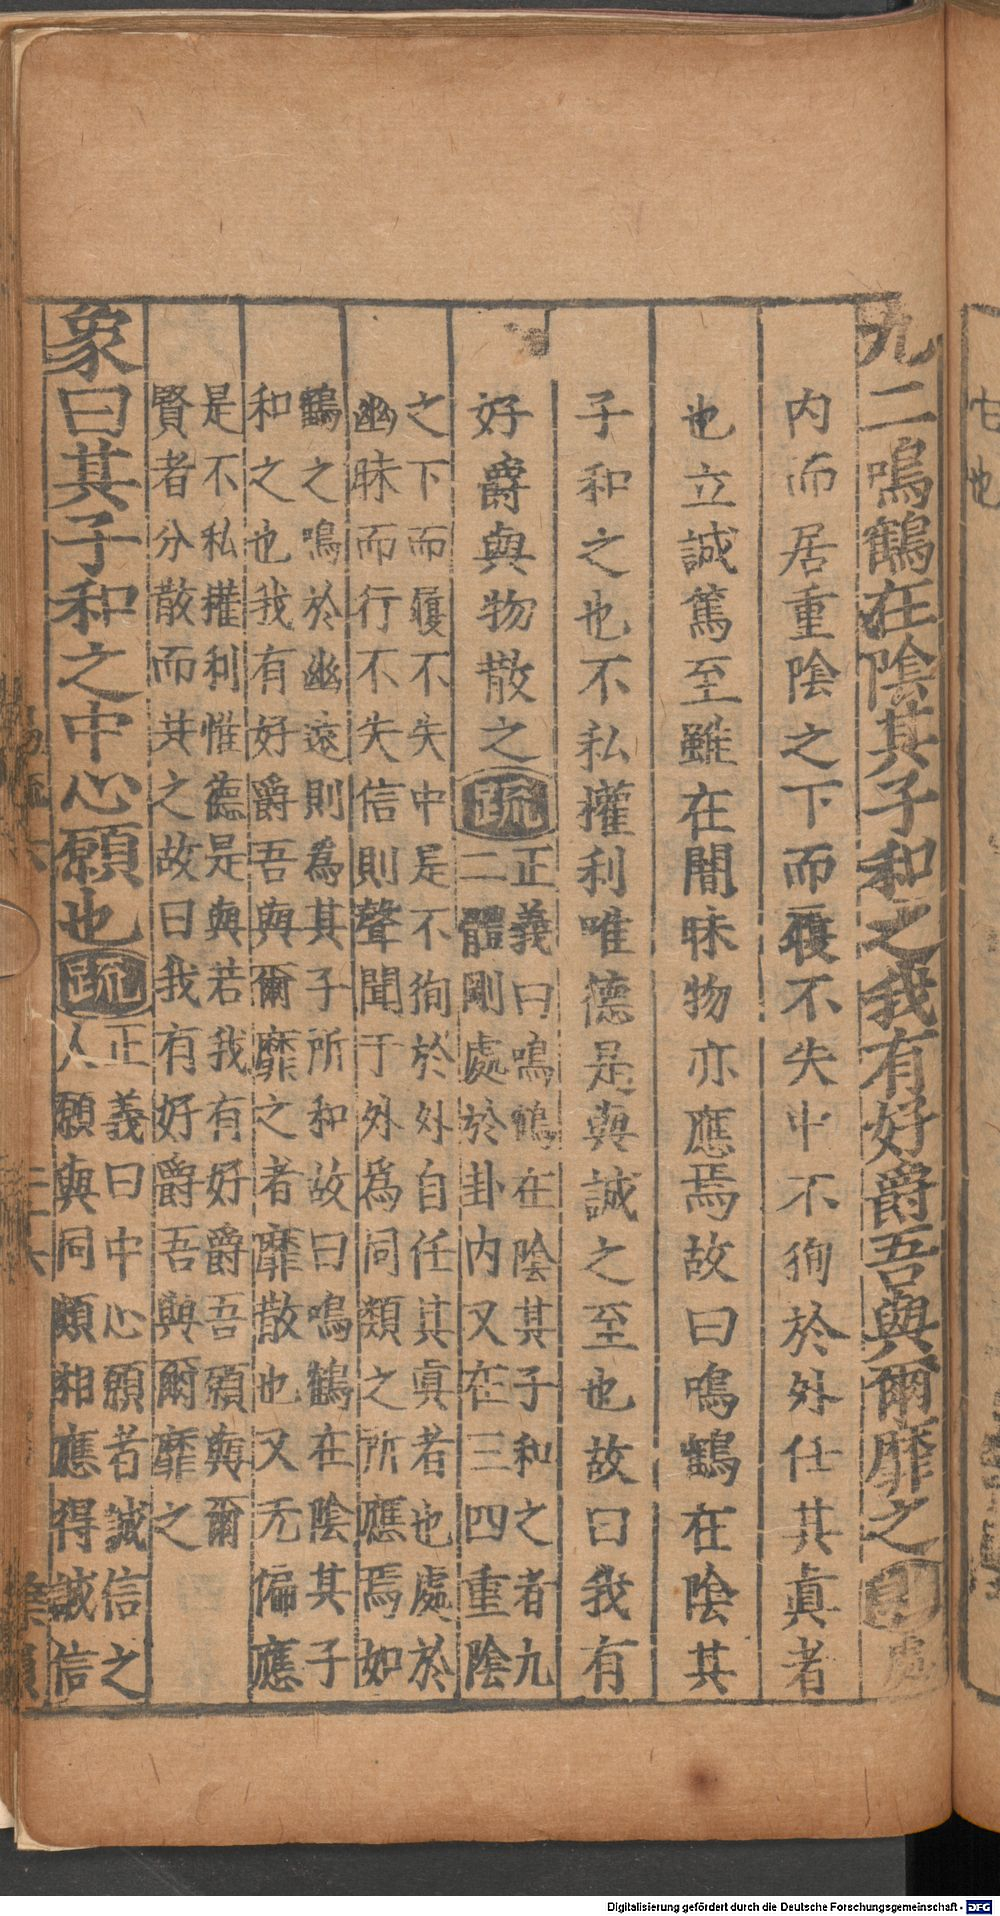 九二鳴鶴在陰其子和之我有好爵吾與爾靡之 處
内而居重陰之下而履不失中不徇於外任其眞者
也立誠篤至雖在闇昧物亦應焉故曰鳴鶴在陰其
子和之也不私權利唯德是與誠之至也故曰我有
好爵與物散之疏
正義曰鳴鶴在陰其子和之者九
二體剛處於卦内又在三四重陰
之下而履不失中是不徇於外自任其眞者也處於
幽昧而行不失信則聲聞于外爲同類之所應焉如
鶴之鳴於幽遠則爲其子所和故曰鳴鶴在陰其子
和之也我有好爵吾與爾靡之者靡散也又无偏應
是不私權利惟德是與若我有好爵吾願與爾
賢者分散而共之故曰我有好爵吾與爾靡之
象曰其子和之中心願也疏
正義曰中心願者誠信之
人願與同類相應得誠信
也
Digitalisierung gefördert durch die Deutsche Forschungsgemeinschaft - DFG